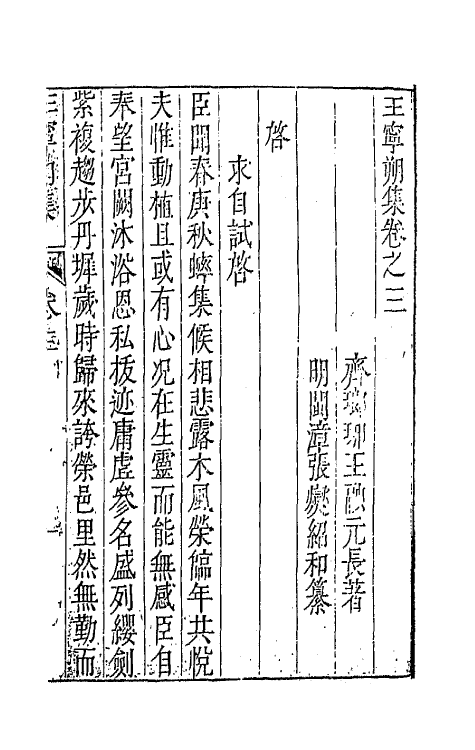 王寧朔集卷之三
齊瑯琊王融元長著
明閩漳張燮紹和纂
啓
求自試啓
臣聞春庚秋蟀集候相悲露木風榮臨年共悅
夫惟動植且或有心况在生靈而能無感臣自
奉望宮闕沐浴恩私拔迹庸虛參名盛列纓劍
紫複趨步丹墀歲時歸來誇榮邑里然無勤而
王寧朔集 卷三 一